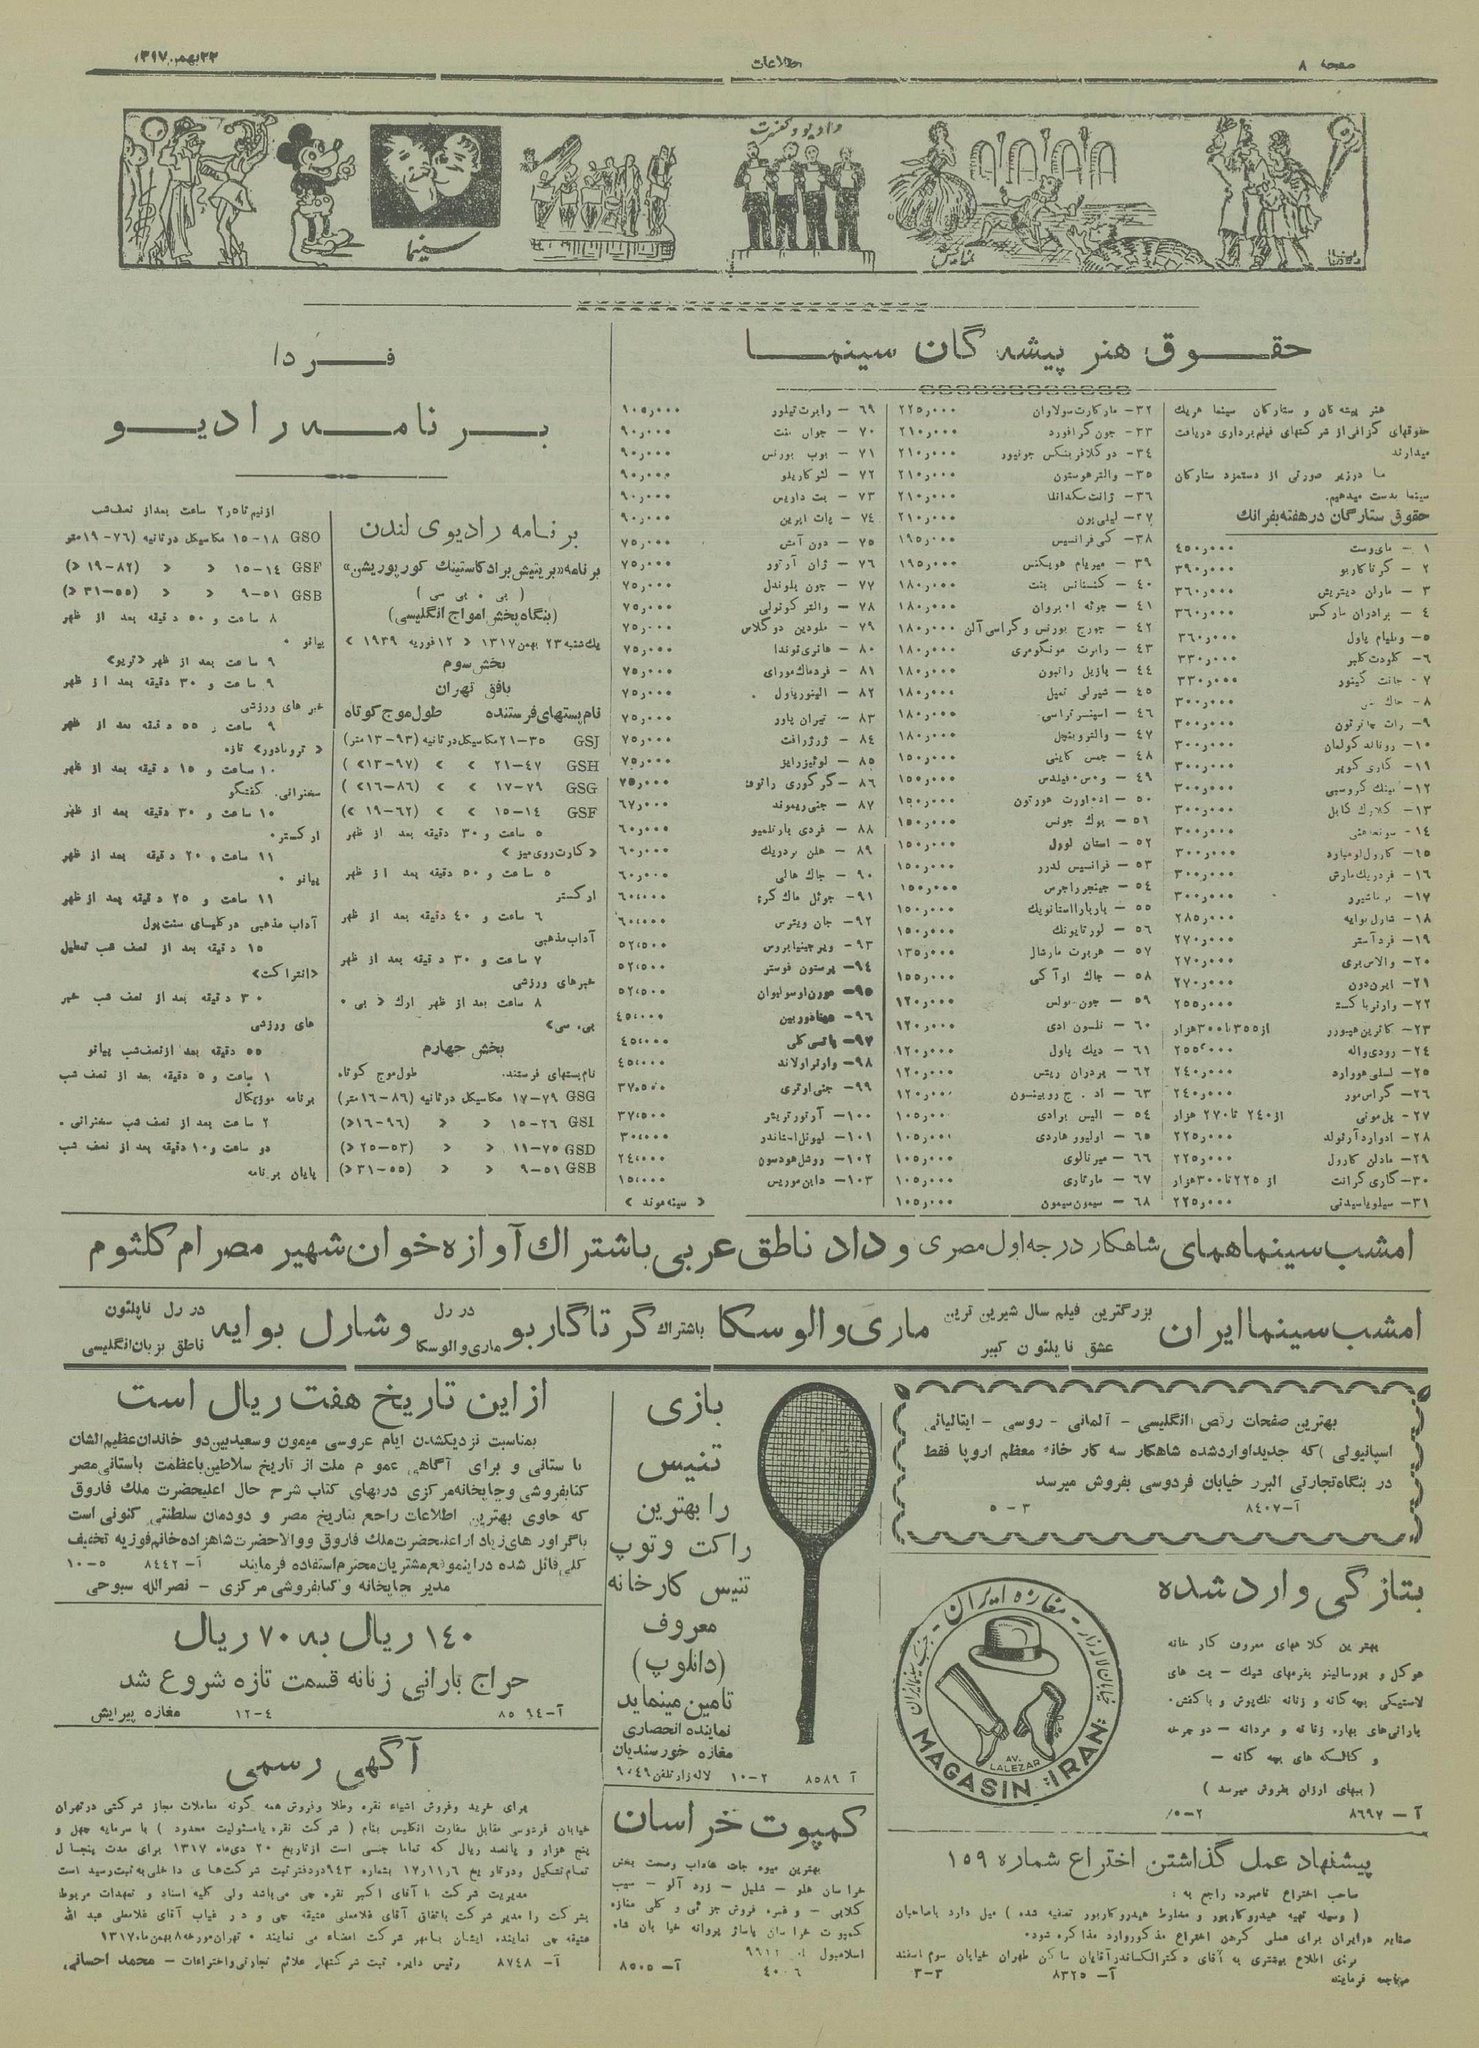 صفحه ۸
اطلاعات
۲۲ بهمن ۱۳۱۷
سینما
نمایش
حقوق هنر پیشه گان سینما
هنر پیشه گان و ستارگان سینما هریک
حقوقهای گزافی از شرکتهای فیلم برداری دریافت
میدارند
ما درزیر صورتی از دستمزد ستارگان
سینما بدست میدهیم.
حقوق ستارگان در هفته بفرانک
۱ – مای وست ۴۵۰٫۰۰۰
۲ – گرتا گاربو ۳۹۰٫۰۰۰
۳ – مارلن دیتریش ۳۶۰٫۰۰۰
۴ – برادران مارکس ۳۶۰٫۰۰۰
۵– ویلیام پاول ۳۶۰٫۰۰۰
۶– کلودت کلبر ۳۳۰٫۰۰۰
۷ – جانت گینور ۳۳۰٫۰۰۰
۱۰– رونالد کولمان ۳۰۰٫۰۰۰
۱۱– گاری کوپر ۳۰۰٫۰۰۰
۱۲– بینگ کروسبی ۳۰۰٫۰۰۰
۱۳– کلارک گابل ۳۰۰٫۰۰۰
۱۵– کارول لومبارد ۳۰۰٫۰۰۰
۱۶– فردریک مارش ۳۰۰٫۰۰۰
۱۸– شارل بوایه ۲۸۵٫۰۰۰
۱۹– فرد آستر ۲۷۰٫۰۰۰
۲۰– والاس بری ۲۷۰٫۰۰۰
۲۱– ایرن دون ۲۷۰٫۰۰۰
۲۲– وارنر باکستر ۲۵۵٫۰۰۰
۲۴– رودی واله ۲۵۵٫۰۰۰
۲۵– لسلی هووارد ۲۴۰٫۰۰۰
۲۶– گراس مور ۲۴۰٫۰۰۰
۲۷– پل مونی از ۲۴۰ تا ۲۷۰ هزار
۲۸– ادوارد آرنولد ۲۲۵٫۰۰۰
۲۹– مادلن کارول ۲۲۵٫۰۰۰
۳۰– گاری گرانت از ۲۲۵ تا ۳۰۰ هزار
۳۱– سیلویا سیدنی ۲۲۵٫۰۰۰
۳۲– مارگارت سولاوان ۲۲۵٫۰۰۰
۳۳– جون کرافورد ۲۱۰٫۰۰۰
۳۴– دوگلاس فربنکس جونیور ۲۱۰٫۰۰۰
۳۵– والتر هوستون ۲۱۰٫۰۰۰
۳۷– لیلی پون ۲۱۰٫۰۰۰
۳۸– کی فرانسیس ۱۹۵٫۰۰۰
۳۹ – میریام هوپکنس ۱۹۵٫۰۰۰
۴۰ – کنستانس بنت ۱۸۰٫۰۰۰
۴۲ – جورج بورنس و گراسی آلن ۱۸۰٫۰۰۰
۴۳ – رابرت مونتگومری ۱۸۰٫۰۰۰
۴۴ – بازیل راتبون ۱۸۰٫۰۰۰
۴۵ – شیرلی تمپل ۱۸۰٫۰۰۰
۴۶ – اسپنسر تراسی ۱۸۰٫۰۰۰
۴۸ – جمس کاینی ۱۵۰٫۰۰۰
۴۹ – و.س. فیلدس ۱۵۰٫۰۰۰
۵۰ – ادوارت هورتون ۱۵۰٫۰۰۰
۵۱ – بوک جونس ۱۵۰٫۰۰۰
۵۲ – استان لورل ۱۵۰٫۰۰۰
۵۳ – فرانسیس لدرر ۱۵۰٫۰۰۰
۵۴ – جینجر راجرس ۱۵۰٫۰۰۰
۵۵ – باربارا استانویک ۱۵۰٫۰۰۰
۵۶ – لورتا یونگ ۱۵۰٫۰۰۰
۵۷ – هربرت مارشال ۱۳۵٫۰۰۰
۵۸ – جاک اوآکی ۱۵۵٫۰۰۰
۵۹ – جون بولس ۱۲۰٫۰۰۰
۶۰ – نلسون ادی ۱۲۰٫۰۰۰
۶۱ – دیک پاول ۱۲۰٫۰۰۰
۶۲ – برادران ریتس ۱۲۰٫۰۰۰
۶۳ – اد. ج روبینسون ۱۲۰٫۰۰۰
۵۴ – الیس برادی ۱۰۵٫۰۰۰
۶۵ – اولیور هاردی ۱۰۵٫۰۰۰
۶۶ – میرنالوی ۱۰۵٫۰۰۰
۶۷ – مارتاری ۱۰۵٫۰۰۰
۶۸ – سیمون سیمون ۱۰۵٫۰۰۰
۶۹ – رابرت تیلور ۱۰۵٫۰۰۰
۷۰ – جوان بنت ۹۰٫۰۰۰
۷۱ – بوب بورنس ۹۰٫۰۰۰
۷۲ – لئو کاریلو ۹۰٫۰۰۰
۷۳ – بت داویس ۹۰٫۰۰۰
۷۴ – پات ابرین ۹۰٫۰۰۰
۷۵ – دون آمش ۷۵٫۰۰۰
۷۶ – ژان آرتور ۷۵٫۰۰۰
۷۷ – جون بلوندل ۷۵٫۰۰۰
۷۸ – والتر کونولی ۷۵٫۰۰۰
۷۹ – ملودین دوگلاس ۷۵٫۰۰۰
۸۰ – هانری فوندا ۷۵٫۰۰۰
۸۱ – فردماک مورای ۷۵٫۰۰۰
۸۲ – الینور پاول ۷۵٫۰۰۰
۸۳ – تیران پاور ۷۵٫۰۰۰
۸۴ – ژرژ رافت ۷۵٫۰۰۰
۸۵ – لوئیز راینر ۷۵٫۰۰۰
۸۶ – گرگوری راتوف ۷۵٫۰۰۰
۸۷ – جنی ریموند ۶۷٫۰۰۰
۸۸ – فردی بارتلمیو ۶۰٫۰۰۰
۸۹ – هلن بردریک ۶۰٫۰۰۰
۹۰ – جاک هالی ۶۰٫۰۰۰
۹۱ – جوئل ماک کری ۶۰٫۰۰۰
۹۲ – جان ویترس ۶۰٫۰۰۰
۹۳ – ویرجینیا بروس ۵۲٫۵۰۰
۹۴– پرستون فوستر ۵۲٫۵۰۰
۹۵– مورن اوسولیوان ۵۲٫۵۰۰
۹۷– پاتسی کلی ۴۵٫۰۰۰
۹۸– وارنر اولاند ۴۵٫۰۰۰
۹۹ – جنی اوتری ۳۷٫۵۰۰
۱۰۰ – آرتور تریشر ۳۷٫۵۰۰
۱۰۱ – لیونل استاندر ۳۰٫۰۰۰
۱۰۲ – روشل هودسون ۲۴٫۰۰۰
۱۰۳ – داین موریس ۱۵٫۰۰۰
« سینه موند »
فردا
برنامه رادیو
برنامه رادیوی لندن
برنامه «بریتیش برادکاستینک کورپوریشن»
( بی . بی سی )
(بنگاه پخش امواج انگلیسی)
یکشنبه ۲۳ بهمن ۱۳۱۷ « ۱۲ فوریه ۱۹۳۹ »
بخش سوم
بافق تهران
نام پستهای فرستنده طول موج کوتاه
GSJ ۲۱-۳۵ مگاسیکل در ثانیه (۹۳-۱۳ متر)
GSH ۲۱-۴۷ » » (۹۷-۱۳ »)
GSG ۱۷-۷۹ » » (۸۶-۱۶ »)
GSF ۱۵-۱۴ » » (۶۲-۱۹ »)
۵ ساعت و ۳۰ دقیقه بعد از ظهر
«کارت روی میز»
۵ ساعت و ۵۰ دقیقه بعد از ظهر
ارکستر
۶ ساعت و ۴۰ دقیقه بعد از ظهر
آداب مذهبی
۷ ساعت و ۳۰ دقیقه بعد از ظهر
خبرهای ورزشی
۸ ساعت بعد از ظهر ارک « بی .
بی. سی»
بخش چهارم
نام پستهای فرستنده. طول موج کوتاه
GSG ۱۷-۷۹ مگاسیکل در ثانیه (۸۶-۱۶ متر)
GSI ۱۵-۲۶ » » (۹۶-۱۶ »)
GSD ۱۱-۷۵ » » (۵۳-۲۵ »)
GSB ۹-۵۱ » » (۵۵-۳۱ »)
از نیم تا ۲٫۵ ساعت بعد از نصف شب
GSO ۱۵-۱۸ مگاسیکل در ثانیه (۷۶-۱۹ متر
GSF ۱۵-۱۴ » » (۸۲-۱۹ »)
GSB ۹-۵۱ » » (۵۵-۳۱ »)
۸ ساعت و ۵۰ دقیقه بعد از ظهر
پیانو .
۹ ساعت بعد از ظهر «تریو»
۹ ساعت و ۳۰ دقیقه بعد از ظهر
خبر های ورزشی
۹ ساعت و ۵۵ دقیقه بعد از ظهر
« تروبادور» تازه
۱۰ ساعت و ۱۵ دقیقه بعد از ظهر
سخنرانی. گفتگو
۱۰ ساعت و ۳۰ دقیقه بعد از ظهر
ارکستر.
۱۱ ساعت و ۲۰ دقیقه بعد از ظهر
پیانو .
۱۱ ساعت و ۲۵ دقیقه بعد از ظهر
آداب مذهبی در کلیسای سنت پول
۱۵ دقیقه بعد از نصف شب تعطیل
«انتراکت»
۳۰ دقیقه بعد از نصف شب خبر
های ورزشی
۵۵ دقیقه بعد از نصف شب پیانو
۱ ساعت و ۵ دقیقه بعد از نصف شب
برنامه موزیکال
۲ ساعت بعد از نصف شب سخنرانی .
دو ساعت و ۱۰ دقیقه بعد از نصف شب
پایان برنامه
امشب سینماهمای شاهکار درجه اول مصری وداد ناطق عربی باشتراک آوازه خوان شهیر مصر ام کلثوم
امشب سینما ایران بزرگترین فیلم سال شیرین ترین عشق ناپلئون کبیر ماری والوسکا باشتراک گرتا گاربو در رل ماری والوسکا وشارل بوایه در رل ناپلئون ناطق بزبان انگلیسی
بهترین صفحات رقص انگلیسی - آلمانی - روسی - ایتالیائی
اسپانیولی )که جدیدا وارد شده شاهکار سه کارخانه معظم اروپا فقط
در بنگاه تجارتی البرز خیابان فردوسی بفروش میرسد
آ-۸۴۰۷ ۳ - ۵
بتازگی وارد شده
بهترین کلاههای معروف کارخانه
هوکل و بورسالینو بفرمهای شیک - پت های
لاستیکی بچه گانه و زنانه تک پوش و با کفش.
بارانی های بهاره زنانه و مردانه - دو چرخه
و کالسکه های بچه گانه –
( ببهای ارزان بفروش میرسد )
آ- ۸۶۹۷ ۲-۵
مغازه ایران - جنب سینما ایران
خیابان لاله زار
AV. LALEZAR
MAGASIN IRAN
پیشنهاد عمل گذاشتن اختراع شماره ۱۵۹
صاحب اختراع نامبرده راجع به :
( وسیله تهیه هیدروکاربور و مخلوط هیدروکاربور تصفیه شده ) میل دارد باصاحبان
صنایع در ایران برای عملی کردن اختراع مذکور وارد مذاکره شود.
برای اطلاع بیشتری به آقای دکتر الکساندر آقایان ساکن طهران خیابان سوم اسفند
مراجعه فرمایند آ- ۸۳۲۵ ۳-۳
بازی
تنیس
را بهترین
راکت و توپ
تنیس کارخانه
معروف
(دانلوپ)
تامین مینماید
نماینده انحصاری
مغازه خورسندیان
آ ۸۵۸۹ ۲-۱۰ لاله زار تلفن ۹۰۴۶
کمپوت خراسان
بهترین میوه جات شاداب وصحت بخش
خراسان هلو - شلیل - زرد آلو - سیب
گلابی - و غیره فروش جزئی و کلی مغازه
کمپوت خراسان پاساژ پروانه خیابان شاه
آ- ۸۵۰۵
از این تاریخ هفت ریال است
بمناسبت نزدیکشدن ایام عروسی میمون و سعید بین دو خاندان عظیم الشان
باستانی و برای آگاهی عموم ملت از تاریخ سلاطین باعظمت باستانی مصر
کتابفروشی و چاپخانه مرکزی در بهای کتاب شرح حال اعلیحضرت ملک فاروق
که حاوی بهترین اطلاعات راجع بتاریخ مصر و دودمان سلطنتی کنونی است
با گراورهای زیاد از اعلیحضرت ملک فاروق و والاحضرت شاهزاده خانم فوزیه تخفیف
کلی قائل شده در اینموقع مشتریان محترم استفاده فرمایند آ- ۸۴۴۲ ۵-۱۰
مدیر چاپخانه و کتابفروشی مرکزی - نصرالله سبوحی
۱۴۰ ریال به ۷۰ ریال
حراج بارانی زنانه قسمت تازه شروع شد
آ- ۸۵۹۴ ۴-۱۲ مغازه پیرایش
آگهی رسمی
برای خرید وفروش اشیاء نقره وطلا وفروش همه گونه معاملات مجاز شرکتی در تهران
خیابان فردوسی مقابل سفارت انگلیس بنام ( شرکت نقره بامسئولیت محدود ) با سرمایه چهل و
پنج هزار و پانصد ریال که تماما جنسی است از تاریخ ۲۰ دی ماه ۱۳۱۷ برای مدت پنجسال
تمام تشکیل ودر تاریخ ۱۷٫۱۱٫۶ بشماره ۹۴۳ دردفتر ثبت شرکت های داخلی به ثبت رسید است
مدیریت شرکت با آقای اکبر نقره چی می باشد ولی کلیه اسناد و تعهدات مربوط
بشرکت را مدیر شرکت باتفاق آقای غلامعلی عتیقه چی و در غیاب آقای غلامعلی عبدالله
عتیقه چی نماینده ایشان بامهر شرکت امضاء می نمایند . تهران مورخه ۸ بهمن ماه ۱۳۱۷
آ- ۸۷۴۸ رئیس دایره ثبت شرکتها، علائم تجارتی واختراعات – محمد احسائی